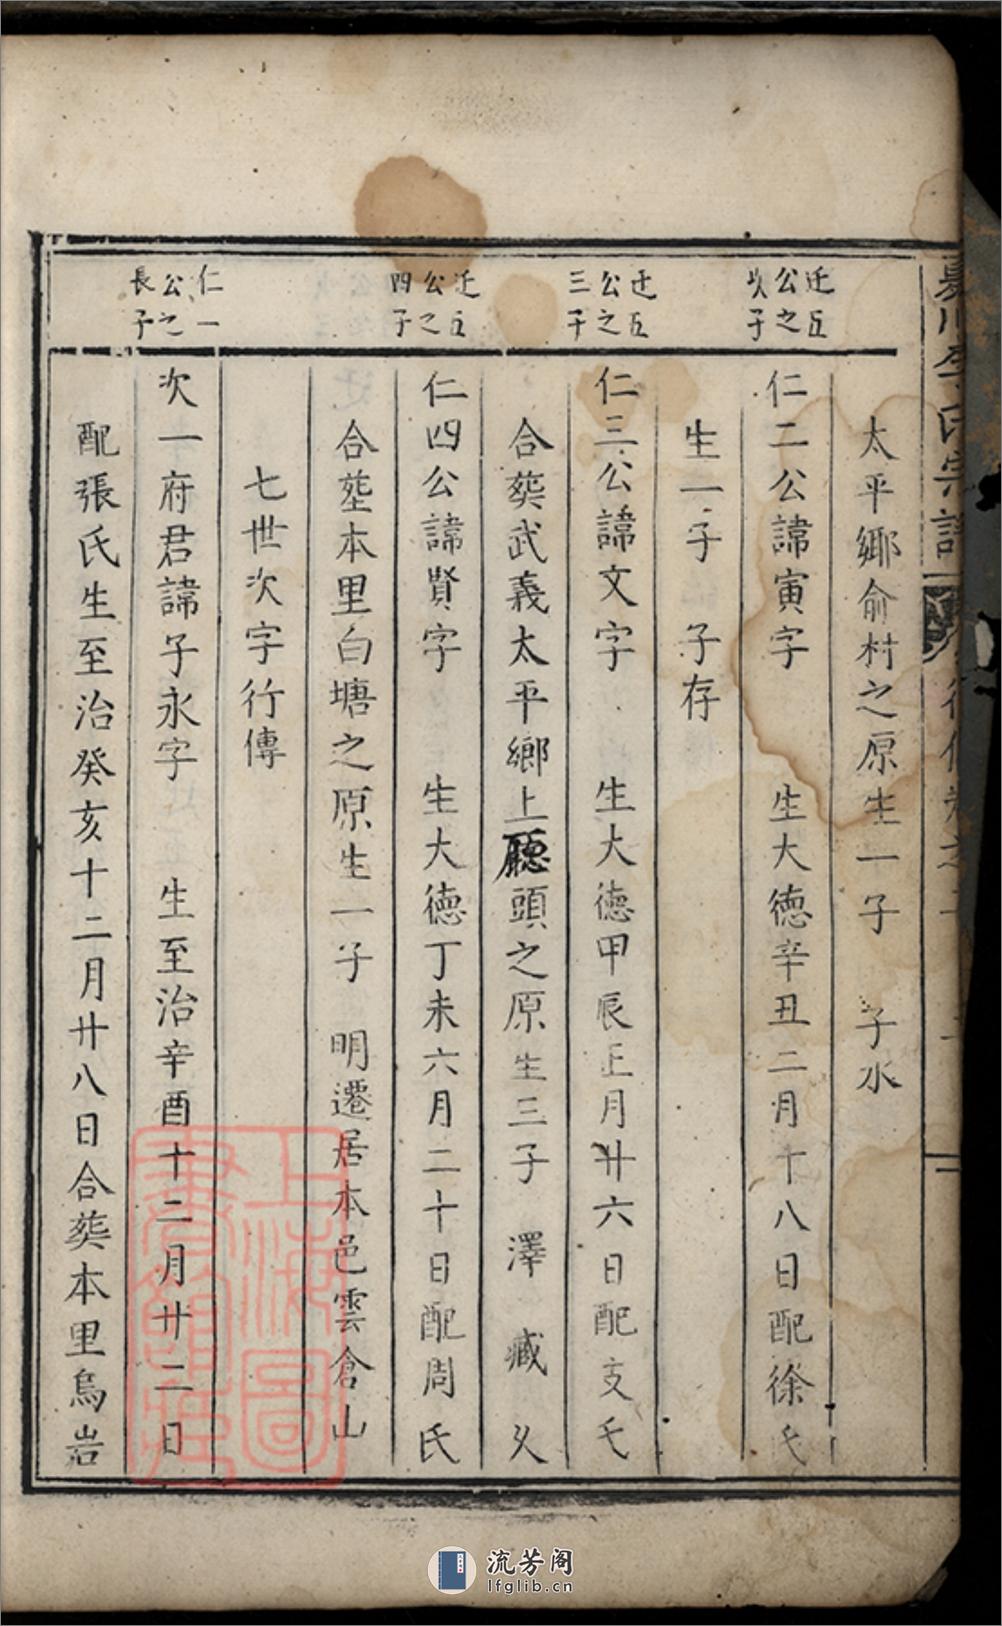 李氏宗譜
太平鄉俞村之原生一子 子水
迁五公之次子
仁二公諱寅字 生大德辛丑二月十八日配徐氏
生一子 子存
迁五公之三子
仁三公諱文字 生大德甲辰正月廿六日配支氏
合葬武義太平鄉上廳頭之原生三子 澤 臧 乂
迁五公之四子
仁四公諱賢字 生大德丁未六月二十日配周氏
合塟本里白塘之原生一子 明遷居本邑雲倉山
七世次字行傳
仁一公之長子
次一府君諱子永字 生至治辛酉十二月廿二日
配張氏生至治癸亥十二月廿八日合葬本里烏岩
上海圖書館藏
流芳阁
lfglib.cn